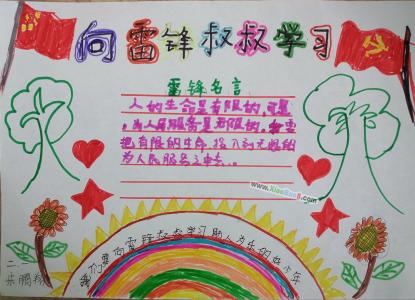 向雷锋叔叔学习
雷锋名言
人的生命是有限的，可是
，为人民服务是无限的，我要
把有限的生命，投入到无限的
为人民服务之中去..。
我们要向雷锋叔叔学习助人为乐的好少年
二
朱鹏